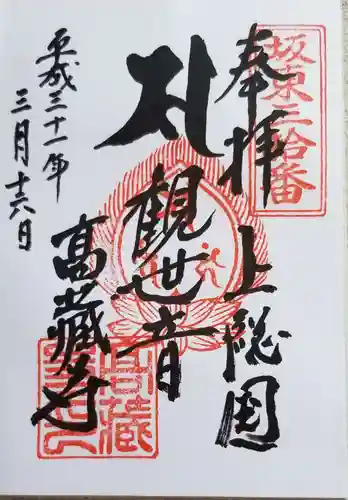 坂東三拾番
奉拝
上総国
観世音
高蔵寺
平成三十一年
三月十六日
高蔵